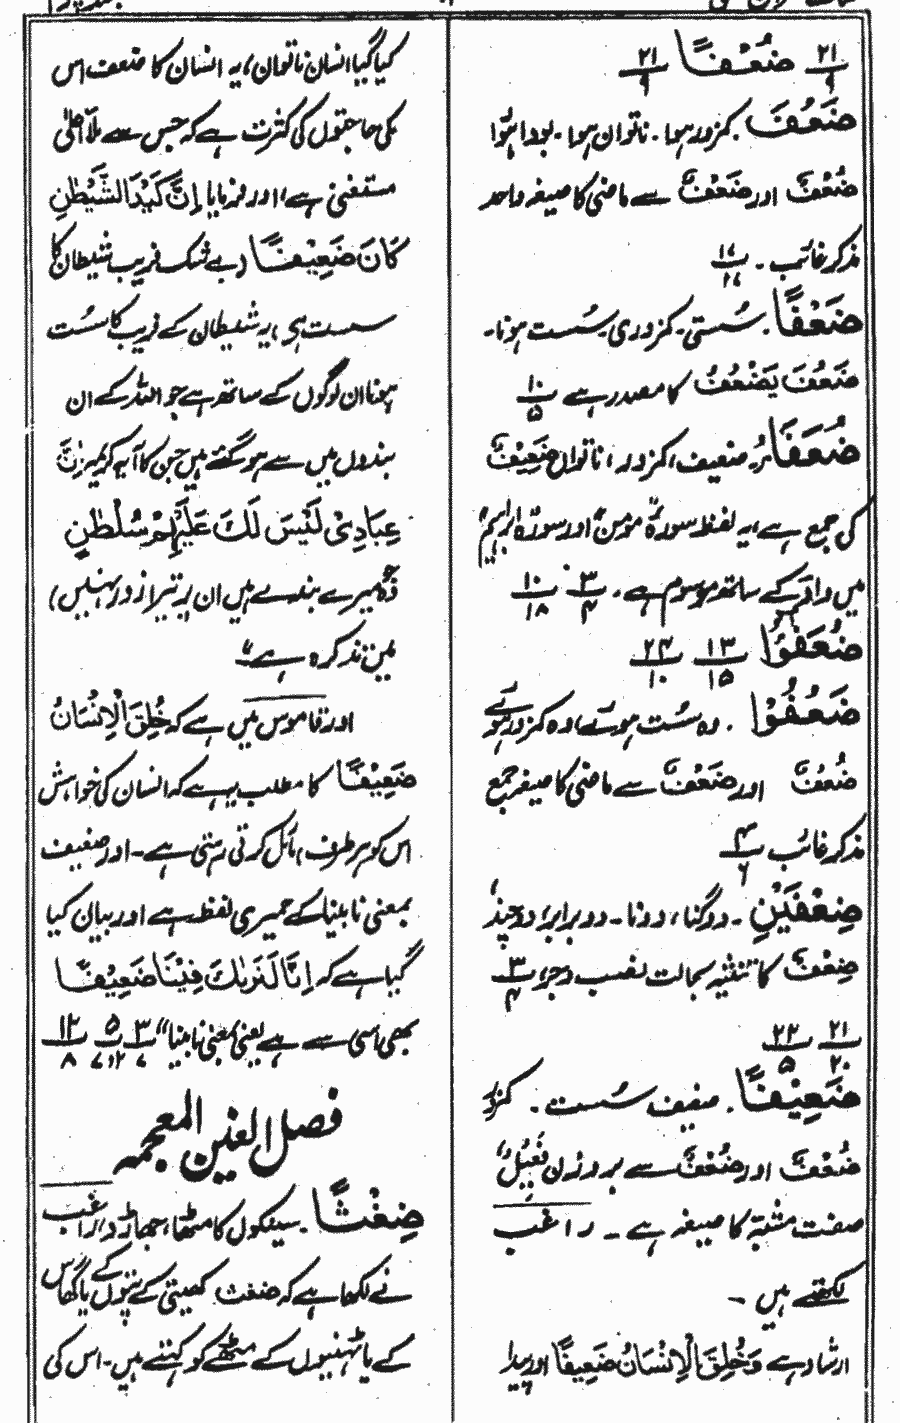 ۲۱/۹ ضُعْفًا ۲۱/۹
ضَعُفَ۔ کمزور ہوا۔ ناتواں ہوا۔ بودا ہوا
ضُعْفٌ اور ضَعْفٌ سے ماضی کا صیغہ واحد
مذکر غائب۔ ۱۷/۱۶
ضَعْفًا۔ سُستی۔ کمزوری۔ سُست ہونا۔
ضَعُفَ يَضْعُفُ کا مصدر ہے ۱۰/۵
ضُعَفَآءُ۔ ضعیف، کمزور، ناتواں ضَعِيْفٌ
کی جمع ہے، یہ لفظ سورۂ مؤمن اور سورۂ ابراہیم
میں واؤ کے ساتھ مرسوم ہے۔ ۳/۴ ۱۰/۱۸
ضُعَفٰٓؤُا ۱۳/۱۵ ۲۴/۱۰
ضَعُفُوْا۔ وہ سُست ہوئے، وہ کمزور ہوئے
ضُعْفٌ اور ضَعْفٌ سے ماضی کا صیغہ جمع
مذکر غائب ۴/۶
ضِعْفَيْنِ۔ دوگنا، دونا۔ دو برابر، دو چند
ضِعْفٌ کا تثنیہ بحالت نصب وجر، ۳/۴
۲۱/۲۰ ۲۲/۵
ضَعِيْفًا۔ ضعیف سُست۔ کمزور
ضُعْفٌ اور ضَعْفٌ سے بروزن فَعِيْلٌ
صفت مشبّہ کا صیغہ ہے۔ راغب
لکھتے ہیں۔
ارشاد ہے وَخُلِقَ الْاِنْسَانُ ضَعِيْفًا اور پیدا
کیا گیا انسان ناتوان، یہ انسان کا ضعف اس
کی حاجتوں کی کثرت ہے کہ جس سے ملأ اعلٰی
مستغنی ہے، اور فرمایا اِنَّ كَيْدَ الشَّيْطٰنِ
كَانَ ضَعِيْفًا (بے شک فریب شیطان کا
سست ہی، یہ شیطان کے فریب کا سُست
ہونا ان لوگوں کے ساتھ ہے جو اللہ کے ان
بندوں میں سے ہو گئے ہیں جن کا آیہ کریمہ اِنَّ
عِبَادِيْ لَيْسَ لَكَ عَلَيْهِمْ سُلْطٰنٌ
(وہ میرے بندے ہیں ان پر تیرا زور نہیں)
میں تذکرہ ہے۔"
اور قاموس میں ہے کہ خُلِقَ الْاِنْسَانُ
ضَعِيْفًا کا مطلب یہ ہے کہ انسان کی خواہش
اس کو ہر طرف مائل کرتی رہتی ہے۔ اور ضعیف
بمعنی نابینا کے حمیری لفظ ہے اور بیان کیا
گیا ہے کہ اِنَّا لَنَرٰىكَ فِيْنَا ضَعِيْفًا
بھی اسی سے ہے یعنی بمعنی نابینا" ۳/۷ ۵/۲، ۷ ۱۲/۸
فصل الغین المعجمہ
ضِغْثًا۔ سینکوں کا مٹھا، جھاڑو، راغب
نے لکھا ہے کہ ضغث کھیتی کے پتّوں یا گھاس کے
کے یا ٹہنیوں کے مٹھے کو کہتے ہیں۔ اس کی